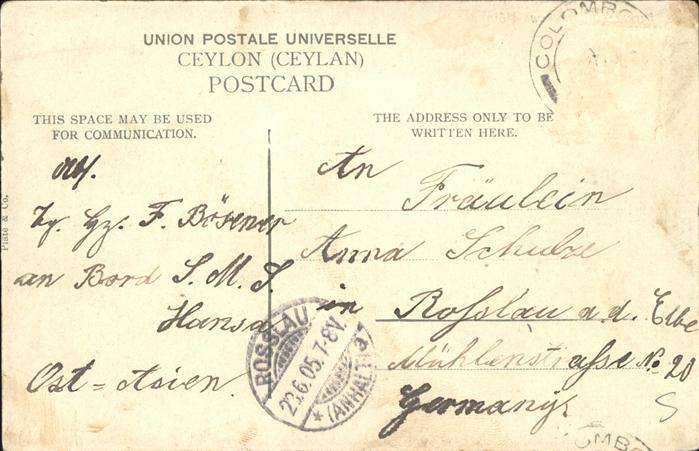 UNION POSTALE UNIVERSELLE
CEYLON (CEYLAN)
POSTCARD
COLOMBO
THIS SPACE MAY BE USED
FOR COMMUNICATION.
THE ADDRESS ONLY TO BE
WRITTEN HERE.
Plâté & Co.
Hz. F. Bösener
an Bord S. M. S.
Hansa
Ost = Asien
An
Fräulein
Anna Schulze
in Rosslau a. d. Elbe
Mühlenstrasse No. 20
Germany
ROSSLAU
23.6.05.7-8V.
* (ANHALT) a
OMBO